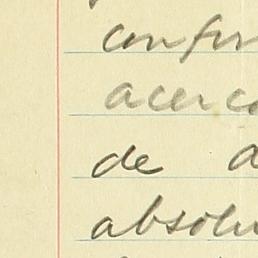 confir
acerca
de a
absolu